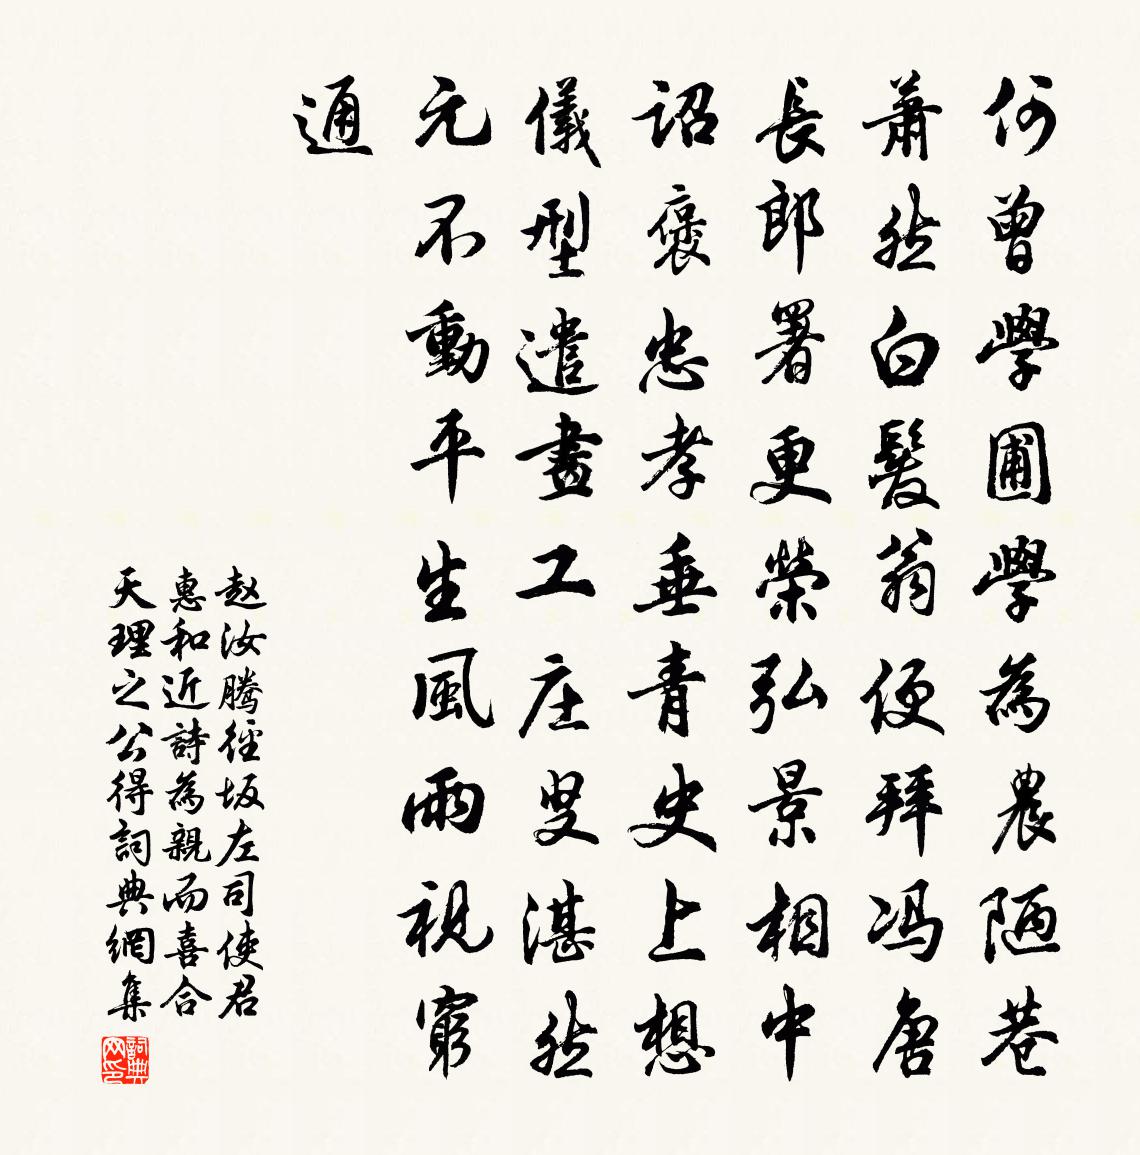 何曾學圃學為農陋巷
蕭然白髮翁便拜馮唐
長郎署更榮弘景相中
詔褒忠孝垂青史上想
儀型遣畫工庄叟湛然
元不動平生風雨視窮
通
赵汝腾徑坂左司使君
惠和近詩為親而喜合
天理之公得詞典網集
詞典
网印